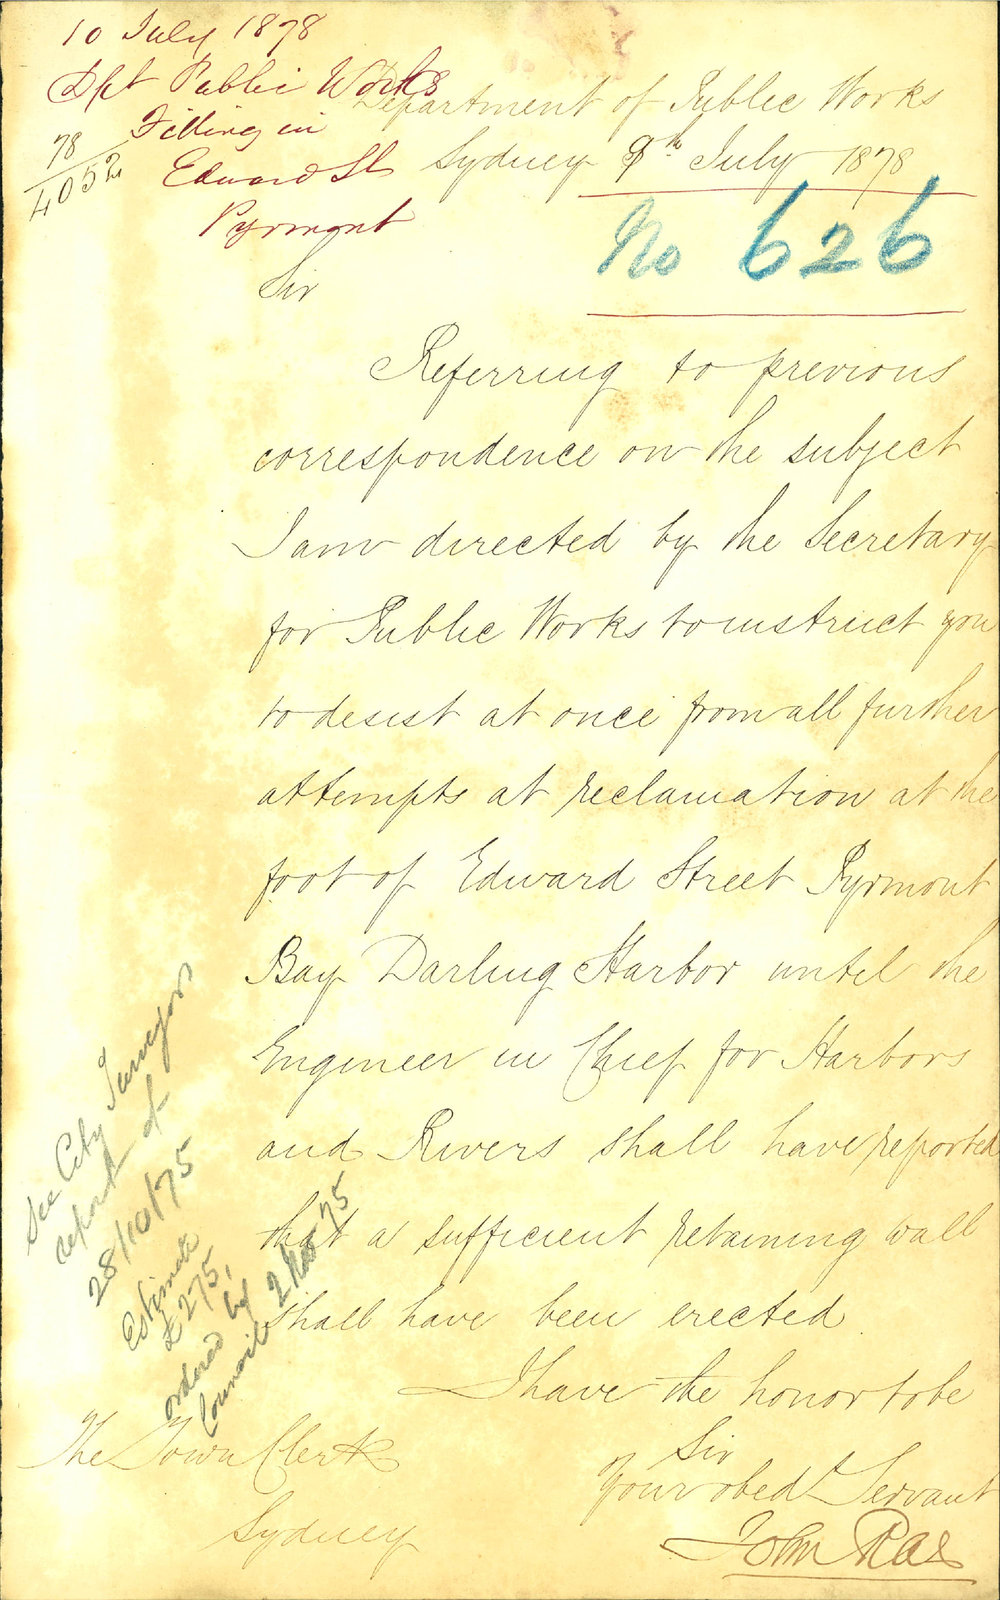 10 July 1878
Dpt Public Works
Filling in
Edward St
Pyrmont
78
4052
Department of Public Works
Sydney 9th July 1878
No 626
Sir
Referring to previous
correspondence on the subject
I am directed by the Secretary
for Public Works to instruct you
to desist at once from all further
attempts at reclamation at the
foot of Edward Street Pyrmont
Bay Darling Harbor until the
Engineer in Chief for Harbors
and Rivers shall have reported
that a sufficient retaining wall
shall have been erected
I have the honor to be
Sir
Your obedt Servant
John Rae
The Town Clerk
Sydney
See City Surveyors
report of
28/10/75
Estimate
£275,
ordered by
Council 2 Nov 75